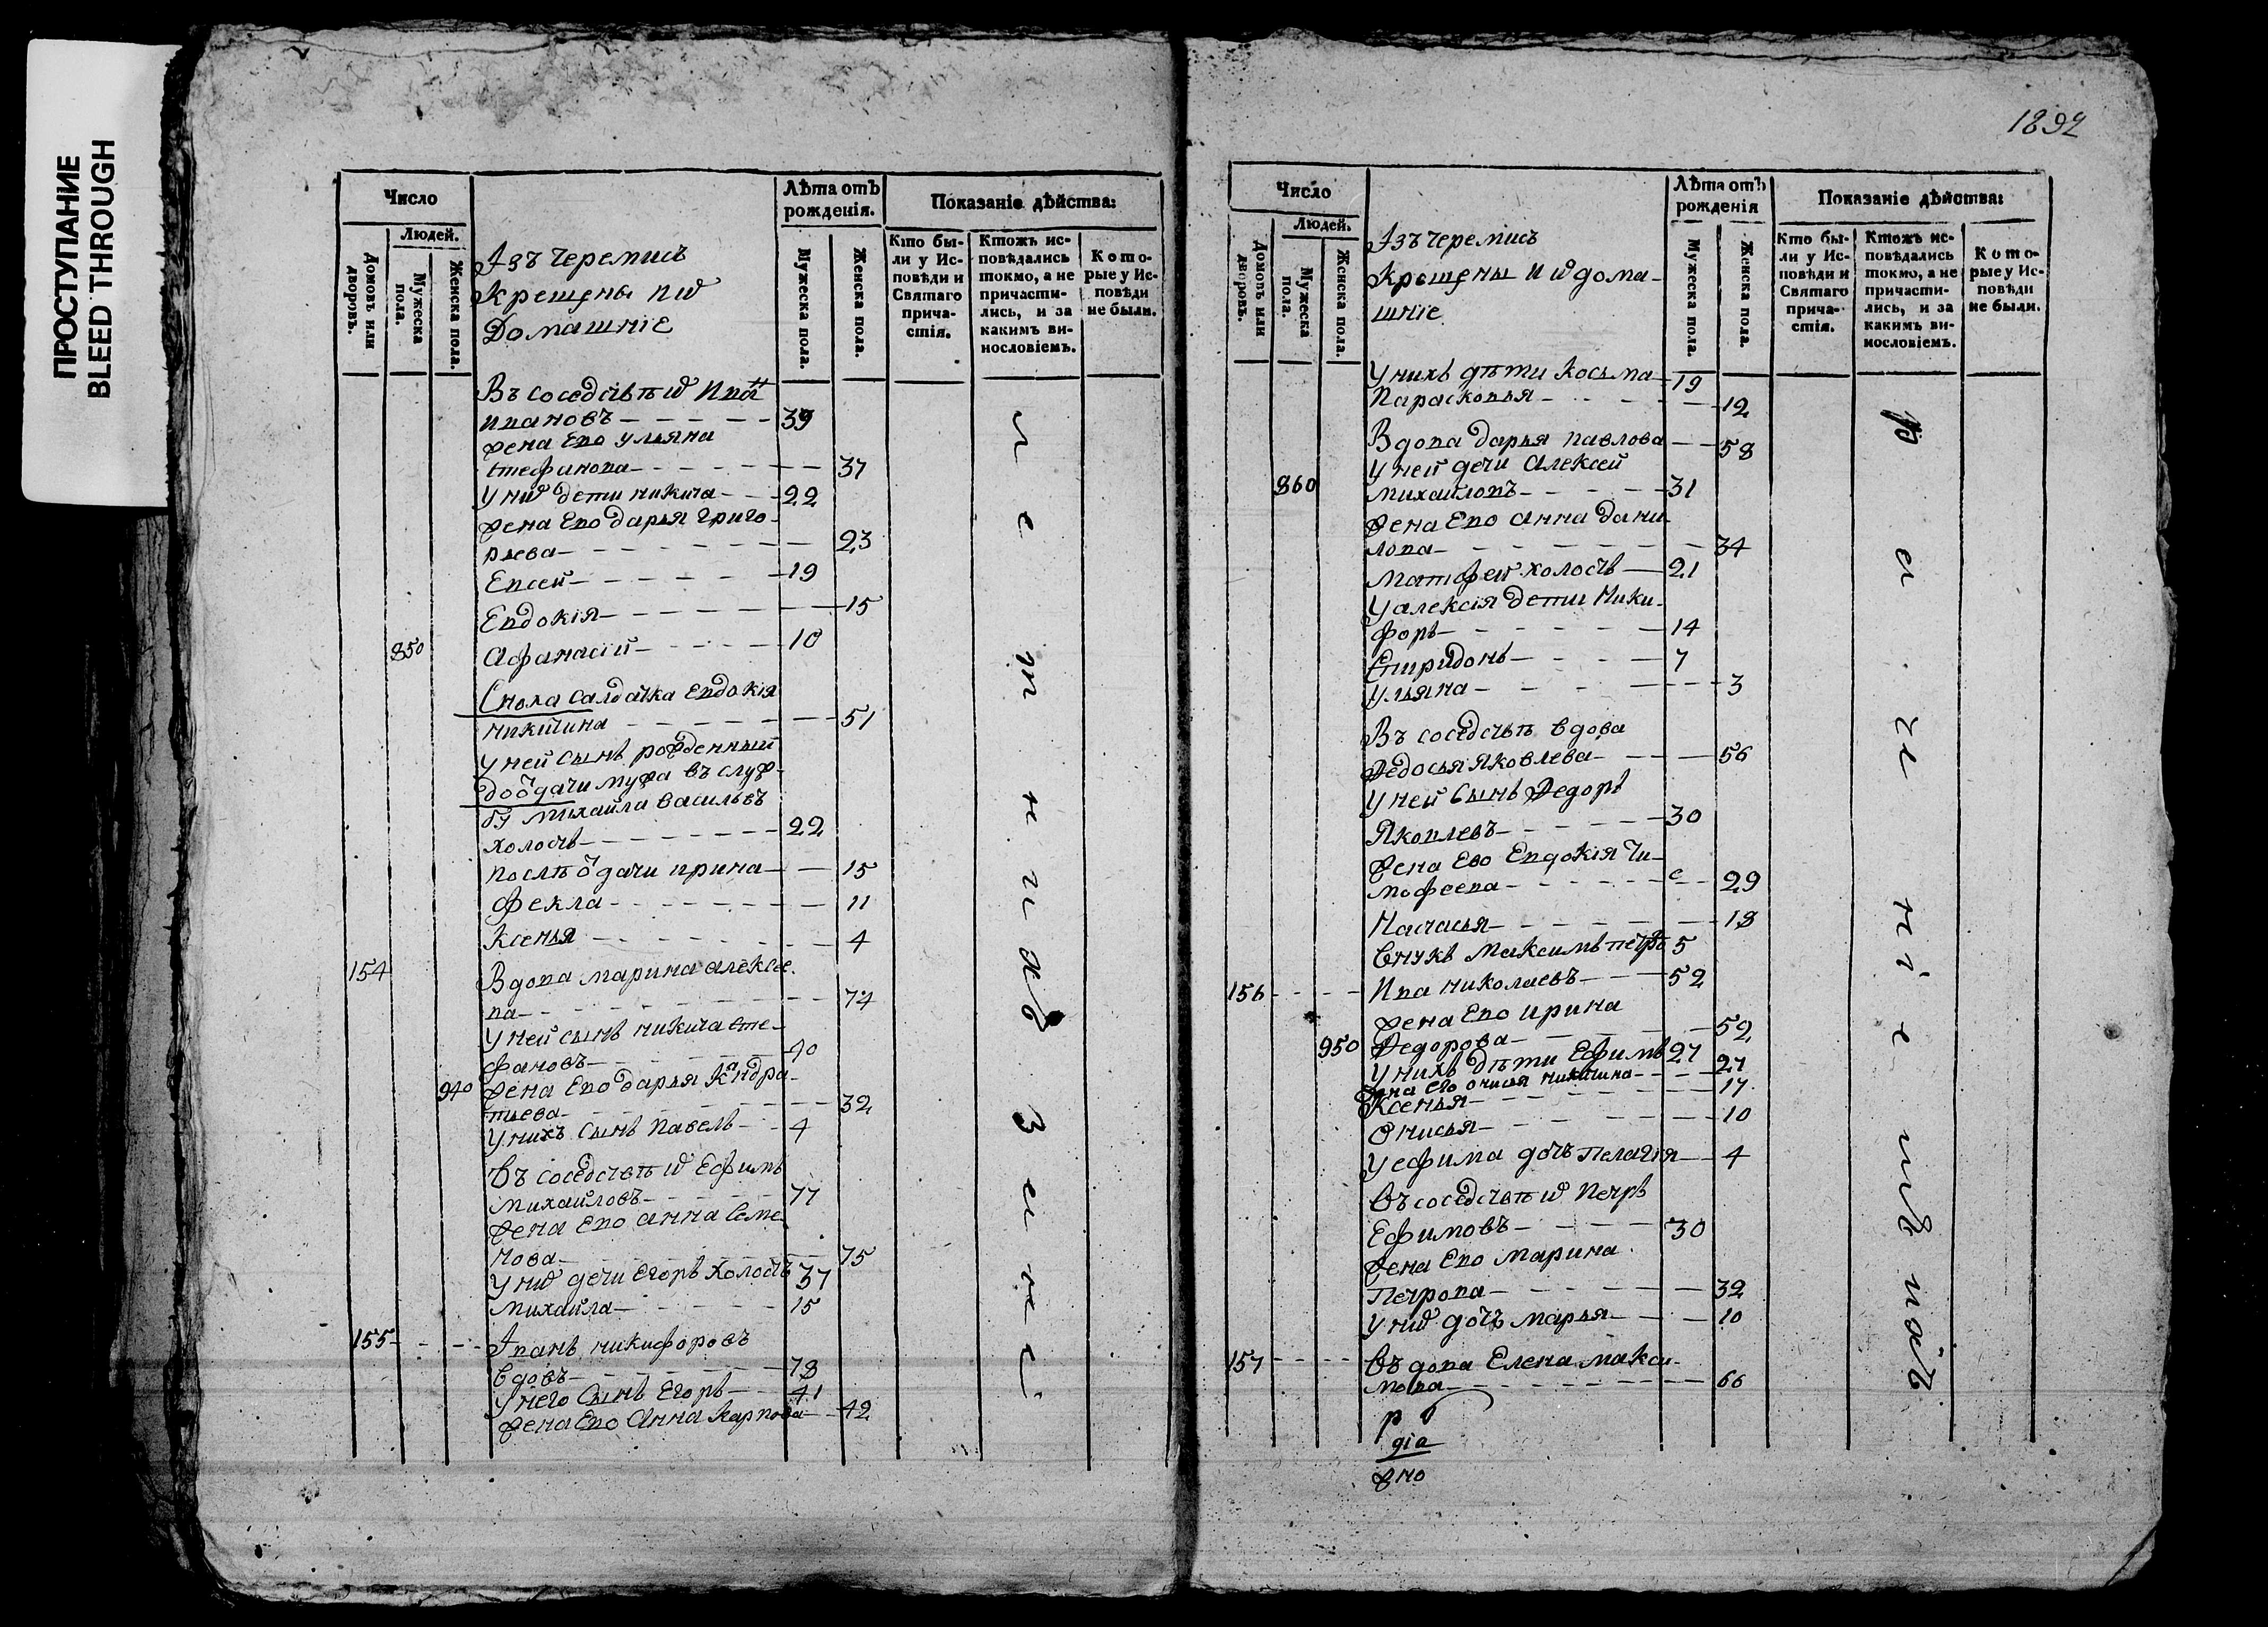 ПРОСТУПАНИЕ
BLEED THROUGH
Число
Людей.
Домовъ или дворовъ.
Мужеска пола.
Женска пола.
Ізъ черемисъ
крещены и ѿ
домашніе
Лѣта отъ рожденія.
Мужеска пола.
Женска пола.
Показаніе дѣйства:
Кто бы-
ли у Ис-
повѣди и
Святаго
прича-
стія.
Ктожъ ис-
повѣдались
токмо, а не
причасти-
лись, и за
какимъ ви-
нословіемъ.
Кото-
рые у Ис-
повѣди
не были.
Въ соседствѣ ѿ
ивановъ 39
жена Ево ульяна
стефанова 37
У ниѿ дети никита 22
жена Ево дарья григо-
рьева 23
Евсей 19
Евдокія 15
850 афанасій 10
Сноха салдатка Евдокія
никитина 51
у ней сынъ рожденный
до ѿдачи мужа въ служ-
бу михайла васильевъ
холостъ 22
послѣ ѿдачи ирина 15
фекла 11
ксенья 4
154 Вдова марина алексее
ва 74
у ней сынъ никита сте-
фановъ 40
940 жена Ево дарья кандра-
тьева 32
у нихъ сынъ павелъ 4
въ соседствѣ ѿ Ефимъ
михайловъ 77
жена Ево анна семе-
нова 75
у ниѿ дети егоръ холостъ 37
михайла 15
155 Іванъ никифоровъ
вдовъ 78
у него сынъ Егоръ 41
жена Ево анна карпова 42
1892
Число
Людей.
Домовъ или дворовъ.
Мужеска пола.
Женска пола.
Ізъ черемисъ
крещены и ѿ дома-
шніе
Лѣта отъ рожденія
Мужеска пола.
Женска пола.
Показаніе дѣйства:
Кто бы-
ли у Ис-
повѣди и
Святаго
прича-
стія.
Ктожъ ис-
повѣдались
токмо, а не
причасти-
лись, и за
какимъ ви-
нословіемъ.
Кото-
рые у Ис-
повѣди
не были.
У нихъ дѣти косьма 19
Парасковья 12
Вдова дарья павлова 58
У ней дети алексей
860 михайловъ 31
жена Ево анна дани-
лова 34
матфей холостъ 21
У алексія дети Ники-
форъ 14
Спиридонъ 7
ульяна 3
Въ соседствѣ вдова
федосья яковлева 56
У ней сынъ федоръ
яковлевъ 30
жена Ево Евдокія ти-
мофеева 29
Настасья 18
внукъ максимъ петро 5
156 Ива николаевъ 52
жена Ево ирина
950 федорова 52
У нихъ дѣти Ефимъ 27
жена его онисья никитина 27
Ксенья 17
онисья 10
У ефима дочь пелагія 4
въ соседствѣ ѿ петръ
Ефимовъ 30
жена Ево марина
Петрова 32
У ниѿ дочь марья 10
157 въдова Елена макси-
мова 66